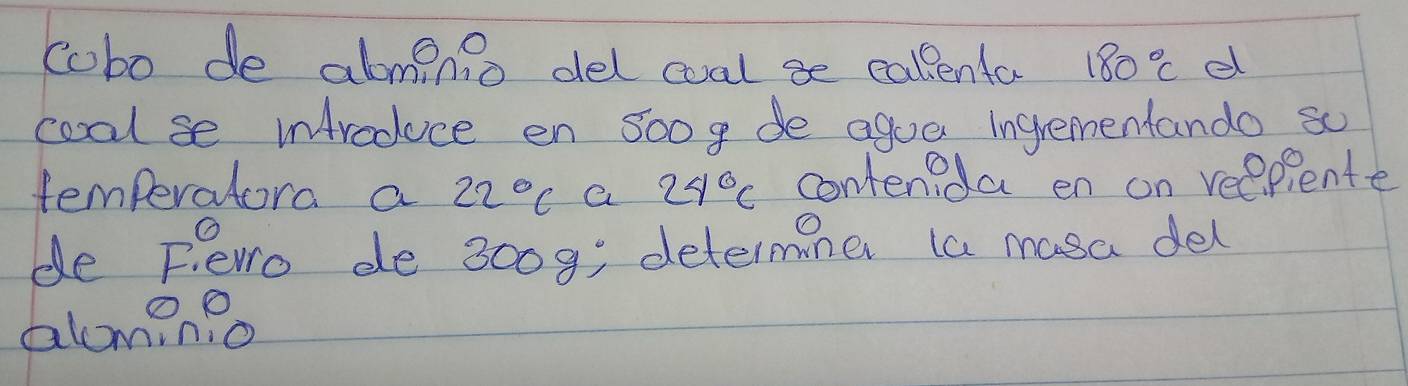 Cubo de aluminio del cual se calienta 180°c el
cual se introduce en 500g de agua ingrementando su
temperatura a 22°c a 24°c contenida en un recipiente
de Fierro de 300g; determina la masa del
aluminio